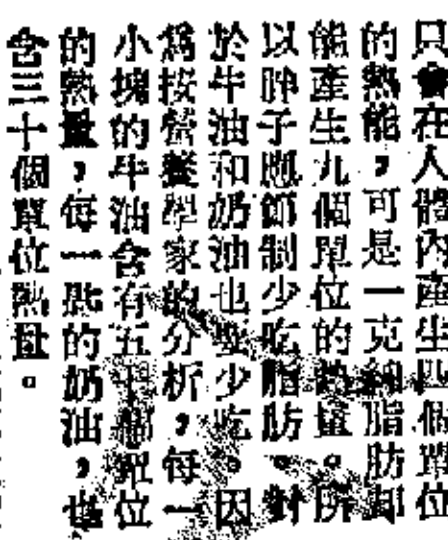 只會在人體內產生四個單位
的熱能，可是一克純脂肪卻
能產生九個單位的熱量。所
以胖子應節制少吃脂肪。對
於牛油和奶油也要少吃。因
爲按營養學家的分析，每一
小塊的牛油含有五十個單位
的熱量，每一匙的奶油，也
含三十個單位熱量。